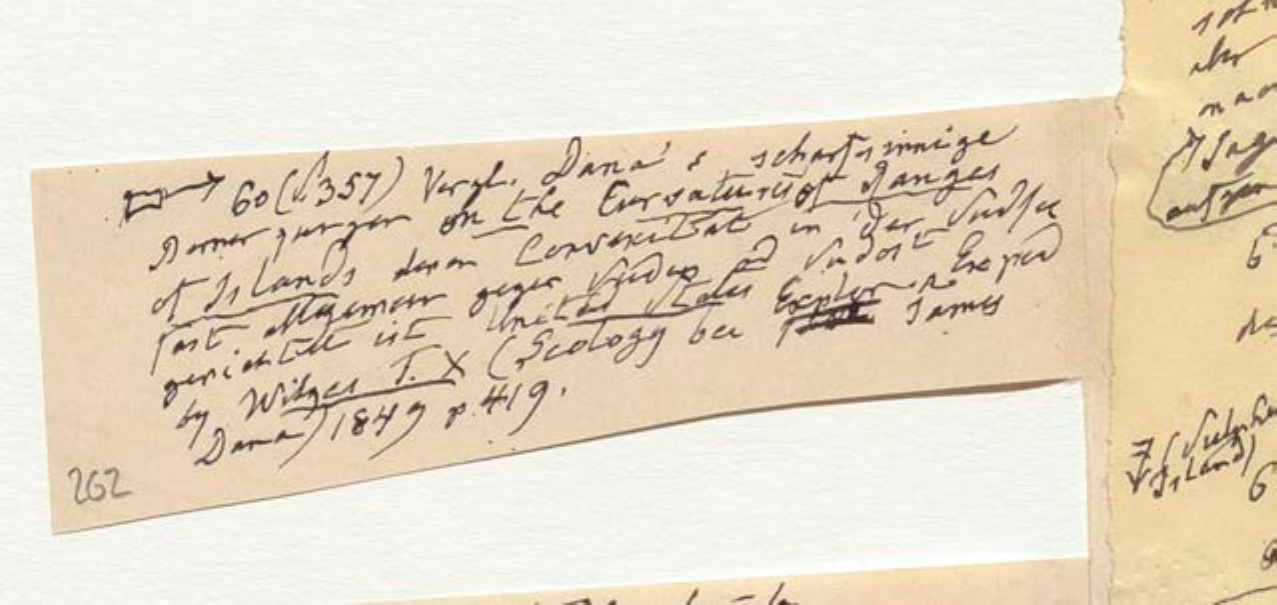 60 (S. 357) Vergl. Dana's scharfsinnige
Bemerkungen on the Curvatures of Ranges
of Islands deren Convexität in der Südsee
fast allgemein gegen Süden od Südost
gerichtet ist United States Explor. Exped
by Wilkes T. X (Geology by James
Dana) 1849 p. 419.
262
Island)